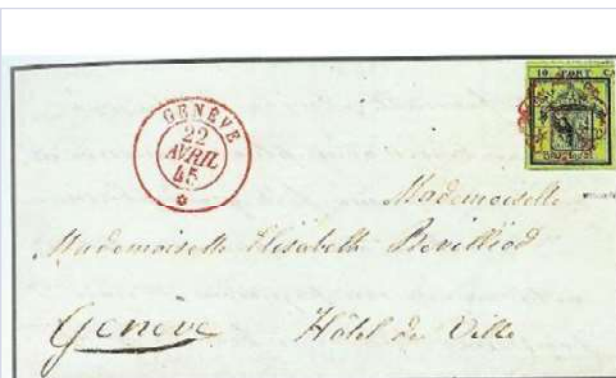 GENÈVE
22
AVRIL
45
10 PORT C
Mademoiselle
Mademoiselle Elisabeth
Genève Hôtel de Ville